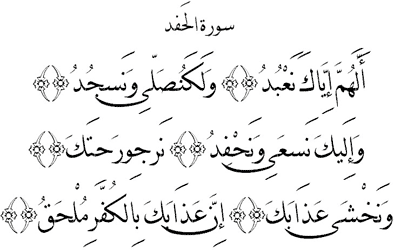 سورة الحفد
أَلَّهُمَّ إِيَّاكَ نَعْبُدُ ﴿﴾ وَلَكَ نُصَلِّى وَنَسجُدُ ﴿﴾
وَإِلَيكَ نَسعَى وَنَحْفِدُ ﴿﴾ نَرجِو رَحتَكَ ﴿﴾
وَنَخْشَى عَذَابَكَ ﴿﴾ إِنَّ عَذَابَكَ بِالكُفَّرِ مُلْحَقُ ﴿﴾